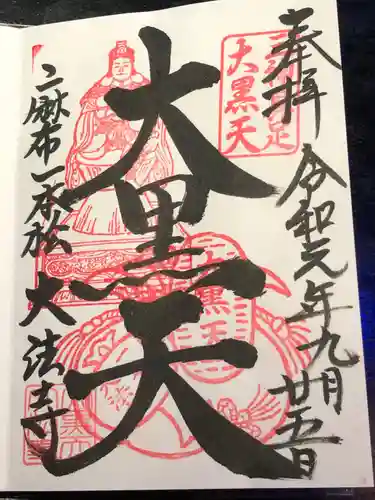 奉拝
令和元年九月廿五日
大黒天
二麻布一本松 大法寺
大黒天